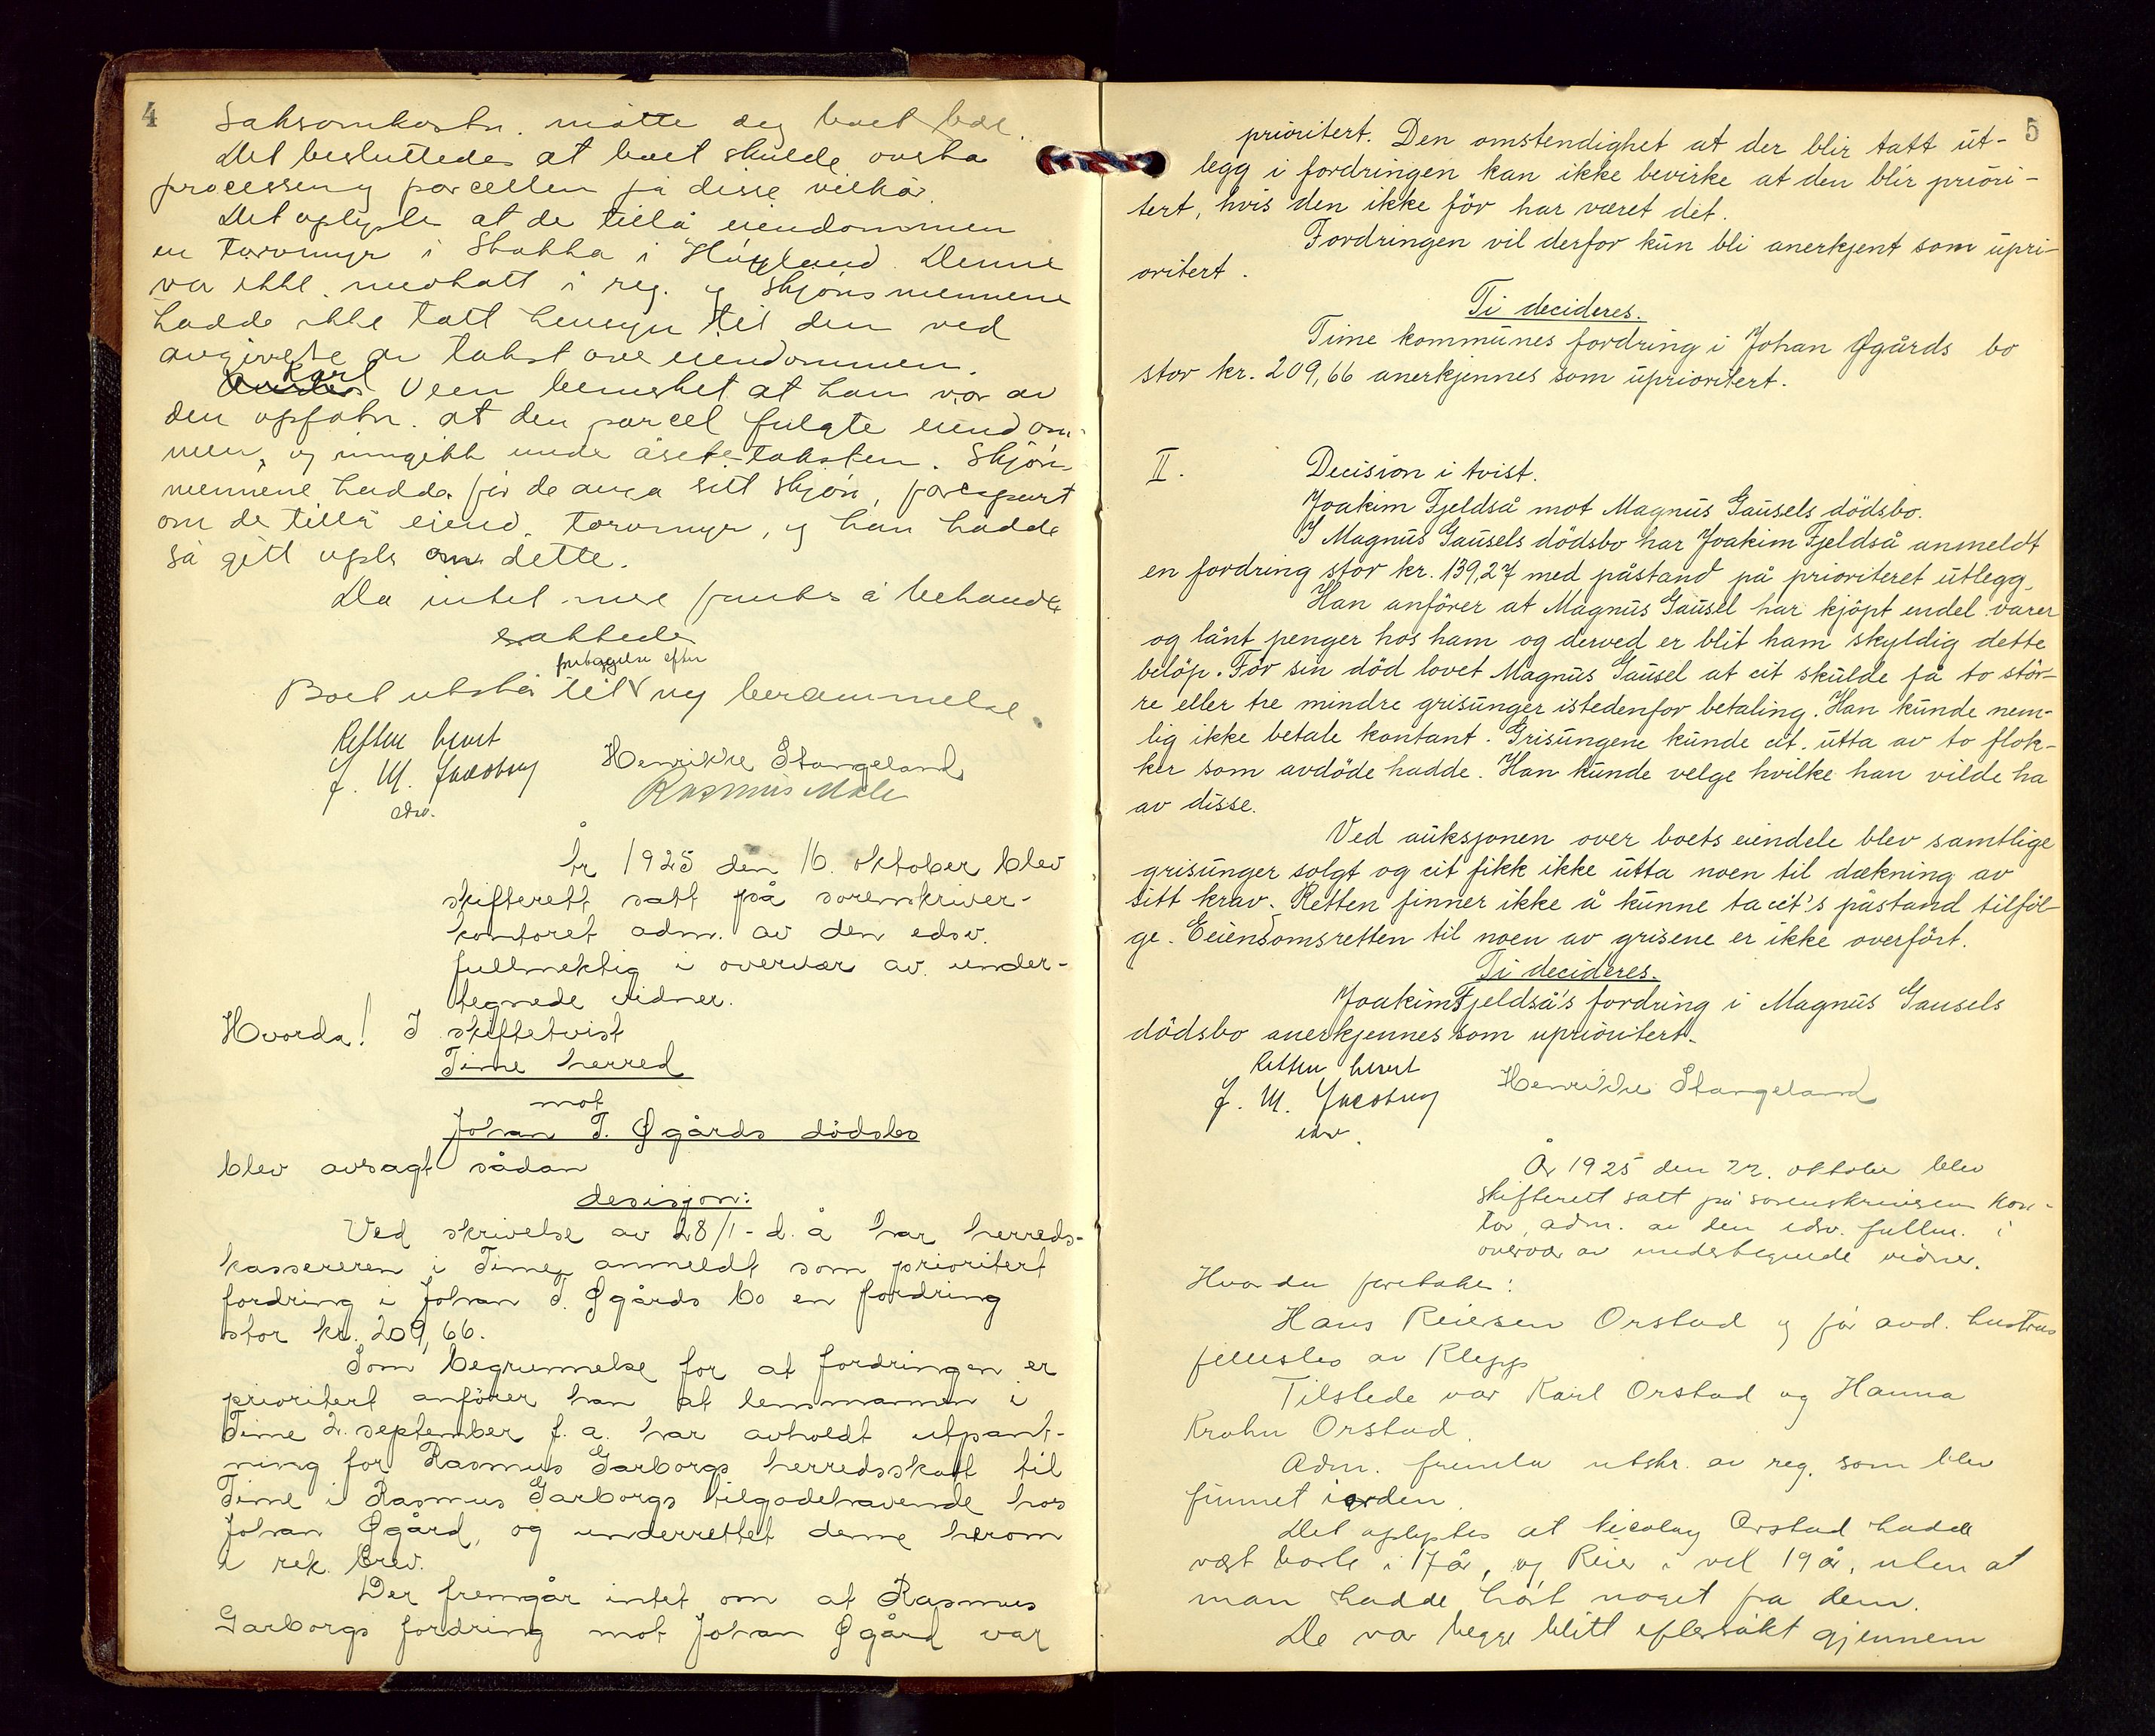 4
Saksomkostn. måtte dog boet bære.
Det besluttedes at boet skulde overta
processen og parcellen på disse vilkår.
Det oplystes at de tillå eiendommen
en torvmyr i Stokka i Høyland. Denne
var ikke medtatt i reg. og skjønsmennene
hadde ikke tatt hensyn til den ved
avgivelse av takst over eiendommen.
Karl Veen bemerket at han var av
den opfatn. at den parcel fulgte eiendom-
men, og inngikk under åsetetaksten. Skjøns
mennene hadde før de avga sitt skjøn, forespurt
om de tillå eiend. torvmyr, og han hadde
så gitt opl. om dette.
Da intet mere fantes å behandle
sattedes
foretagelse efter
Boet utstår til ny berammelse.
Retten hevet
J. M. Jacobsen
edsv.
Henrikke Stangeland
Rasmus Mæle
År 1925 den 16. oktober blev
skifterett satt på sorenskriver-
kontoret adm. av den edsv.
fullmektig i overvær av under-
tegnede vidner.
Hvorda! I skiftetvist
Time herred
mot
Johan T. Øgårds dödsbo
blev avsagt sådan
desisjon:
Ved skrivelse av 28/1 - d. å har herreds-
kassereren i Time anmeldt som prioritert
fordring i Johan T. Øgårds bo en fordring
stor kr. 209,66.
Som begrunnelse for at fordringen er
prioritert anförer han at lensmannen i
Time 2. september f. a. har avholdt utpant-
ning for Rasmus Garborgs herredsskatt til
Time i Rasmus Garborgs tilgodehavende hos
Johan Øgård, og underrettet denne herom
i rek. brev.
Der fremgår intet om at Rasmus
Garborgs fordring mot Johan Øgård var
5
prioritert. Den omstendighet at der blir tatt ut-
legg i fordringen kan ikke bevirke at den blir priori-
tert, hvis den ikke för har været det.
Fordringen vil derfor kun bli anerkjent som upri-
oritert.
Ti decideres.
Time kommunes fordring i Johan Øgårds bo
stor kr. 209,66 anerkjennes som uprioritert.
II. Decision i tvist.
Joakim Fjeldså mot Magnus Gausels dödsbo.
I Magnus Gausels dödsbo har Joakim Fjeldså anmeldt
en fordring stor kr. 139,27 med påstand på prioriteret utlegg.
Han anförer at Magnus Gausel har kjöpt endel varer
og lånt penger hos ham og derved er blit ham skyldig dette
belöp. För sin död lovet Magnus Gausel at cit skulde få to stör-
re eller tre mindre grisunger istedenfor betaling. Han kunde nem-
lig ikke betale kontant. Grisungene kunde cit. utta av to flok-
ker som avdöde hadde. Han kunde velge hvilke han vilde ha
av disse.
Ved auksjonen over boets eiendele blev samtlige
grisunger solgt og cit fikk ikke utta noen til dækning av
sitt krav. Retten finner ikke å kunne ta cit's påstand tilföl-
ge. Eeiendomsretten til noen av grisene er ikke overfört.
Ti decideres.
Joakim Fjeldså's fordring i Magnus Gausels
dödsbo anerkjennes som uprioritert.
Retten hevet
J. M. Jacobsen
edsv.
Henrikke Stangeland
År 1925 den 22. oktober blev
skifterett satt på sorenskriverens kon-
tor, adm. av den edsv. fullm. i
overvær av undertegnede vidner.
Hvorda foretokes:
Hans Reiersen Orstad og før avd. hustrus
fellesbo av Klepp
Tilstede var Karl Orstad og Hanna
Krohn Orstad.
Adm. fremla utskr. av reg. som blev
funnet iorden.
Det oplystes at Nicolay Orstad hadde
vært borte i 17 år, og Reier i vel 19 år, uten at
man hadde hørt noget fra dem.
De var begge blitt eftersøkt gjennem